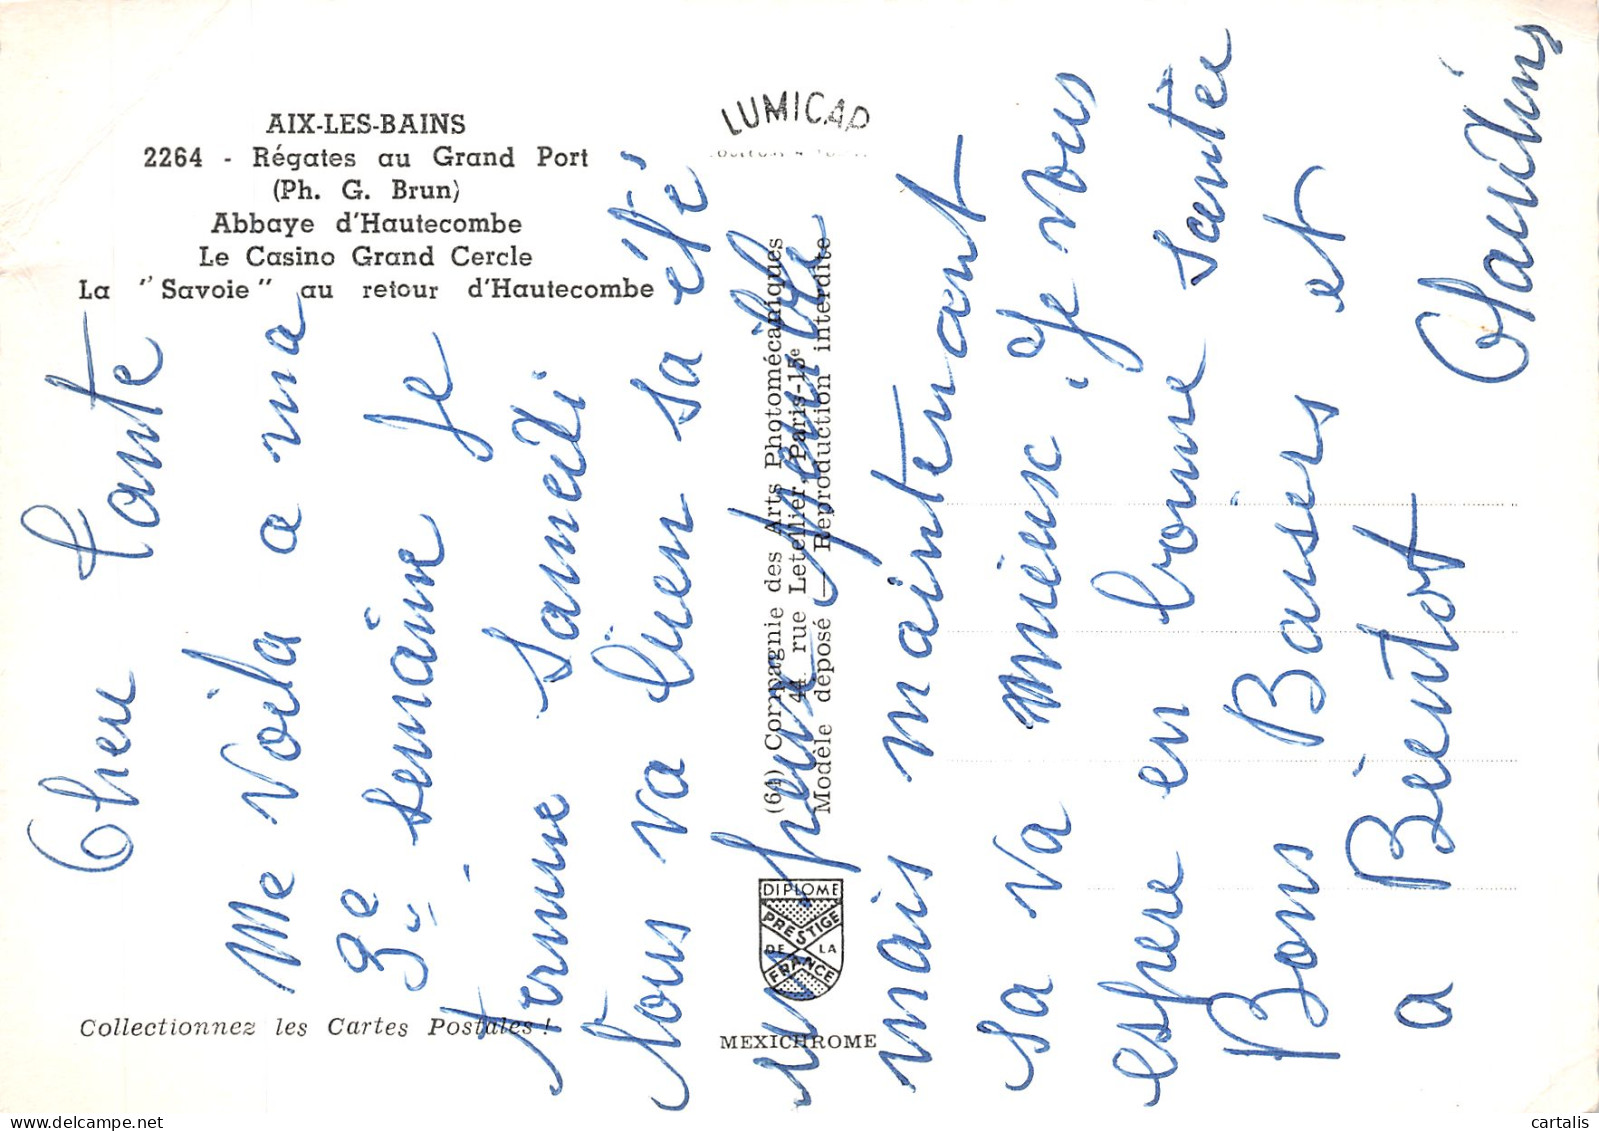 AIX-LES-BAINS
2264 - Régates au Grand Port
(Ph. G. Brun)
Abbaye d'Hautecombe
Le Casino Grand Cercle
La "Savoie" au retour d'Hautecombe
LUMICAP
(64) Compagnie des Arts Photomécaniques
44, rue Letellier, Paris-15e
Modèle déposé — Reproduction interdite
DIPLOME
PRESTIGE
DE LA
FRANCE
Collectionnez les Cartes Postales !
MEXICHROME
Cher tante
Me Voila a ma
3e semaine Je
termine Sammedi
Nous va bien sa été
un peux penible
mais maintenant
sa va mieux. Je vous
espere en bonne santer
Bons Baisers et
a Bientot
Claudius
cartalis